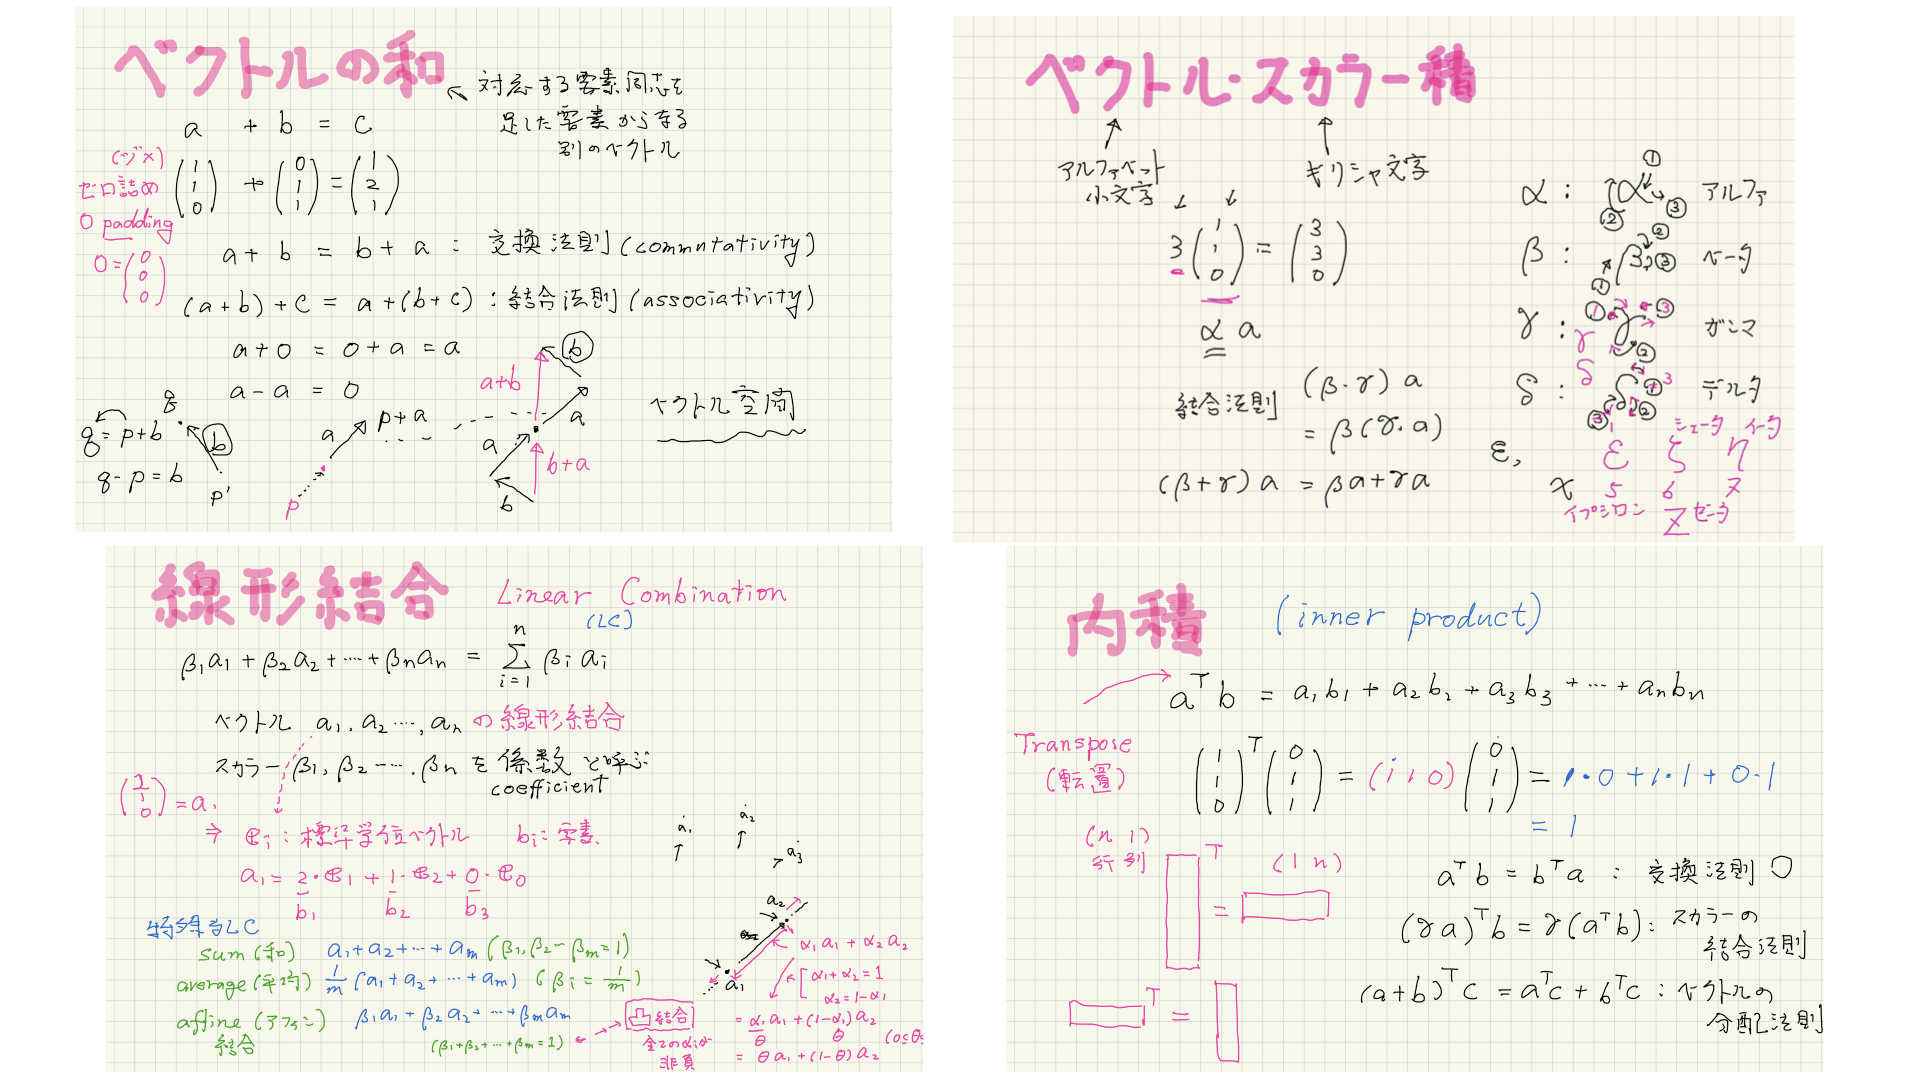 ベクトルの和
対応する要素同志を
足した要素からなる
別のベクトル
a + b = c
(1 1 0) + (0 1 1) = (1 2 1)
ゼロ詰め
0 padding
0 = (0 0 0)
a + b = b + a : 交換法則 (commutativity)
(a+b)+c = a+(b+c) : 結合法則 (associativity)
a+0 = 0+a = a
a-a = 0
q
q = p+b
b
q-p = b
p'
a
p+a
p
a+b
b
a
a
b+a
b
ベクトル空間
ベクトル・スカラー積
アルファベット
小文字
ギリシャ文字
3 (1 1 0) = (3 3 0)
α a
結合法則
(β・γ) a
= β(γ・a)
(β+γ) a = βa+γa
α : α アルファ
① ② ③
β : β ベータ
① ② ③
γ : γ ガンマ
① ② ③
γ
δ : δ デルタ
① ② ③
δ
ε,
ε ζ η
x 5 6 7
イプシロン Z ゼータ
シェータ イータ
線形結合 Linear Combination
(LC)
β1a1 + β2a2 + … + βnan = Σ i=1 n βi ai
ベクトル a1, a2 …, an の線形結合
スカラー β1, β2 …, βn を係数と呼ぶ
coefficient
(2 1 0) = a1
⇒ ei : 標準単位ベクトル bi : 要素
a1 = 2・e1 + 1・e2 + 0・e0
b1 b2 b3
特殊なLC
sum (和) a1+a2+…+am (β1, β2 … βm=1)
average (平均) 1/m (a1+a2+…+am) (βi = 1/m)
affine (アフィン) β1a1 + β2a2 + … + βmam
結合 (β1+β2+…+βm=1)
凸結合
全てのαiが
非負
a1
a2
a3
a2
a1
α1a1 + α2a2
α1+α2=1
α2=1-α1
= α1a1+(1-α1)a2
θ θ (0≤θ≤
= θa1+(1-θ)a2
内積 (inner product)
aᵀb = a1b1 + a2b2 + a3b3 + … + anbn
Transpose
(転置)
(1 1 0)ᵀ (0 1 1) = (1 1 0) (0 1 1) = 1・0+1・1+0・1
= 1
(n 1)
行列
T
=
(1 n)
T
=
aᵀb = bᵀa : 交換法則 ○
(γa)ᵀb = γ(aᵀb) : スカラーの
結合法則
(a+b)ᵀc = aᵀc + bᵀc : ベクトルの
分配法則